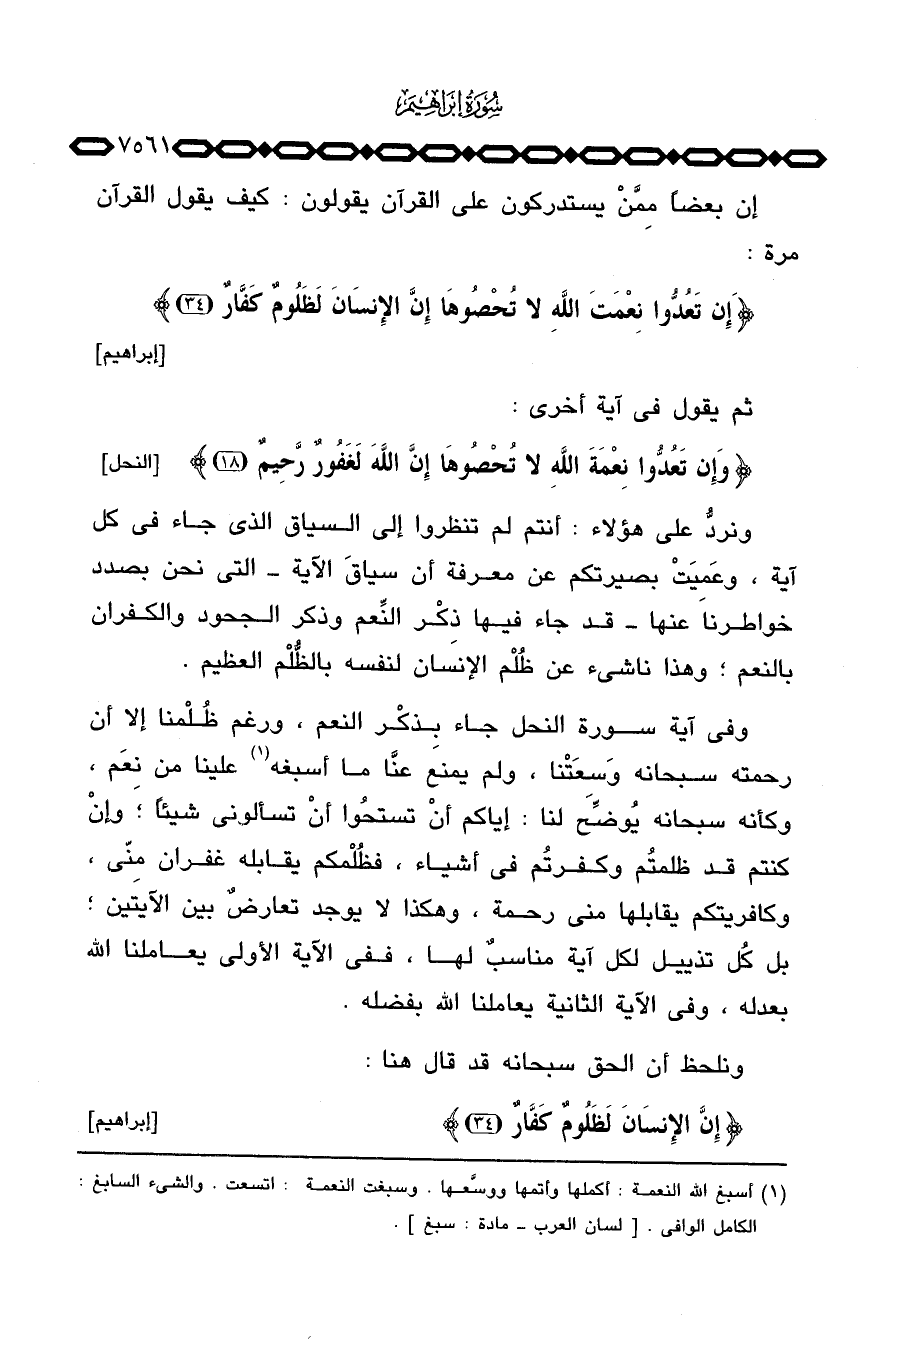 سُورَةُ إِبْرَاهِيمَ
٧٥٦١
إن بعضاً ممَّنْ يستدركون على القرآن يقولون : كيف يقول القرآن
مرة :
﴿ إِن تَعُدُّوا نِعْمَتَ اللَّهِ لا تُحْصُوهَا إِنَّ الإِنسَانَ لَظَلُومٌ كَفَّارٌ (٣٤) ﴾
[إبراهيم]
ثم يقول فى آية أخرى :
﴿ وَإِن تَعُدُّوا نِعْمَةَ اللَّهِ لا تُحْصُوهَا إِنَّ اللَّهَ لَغَفُورٌ رَّحِيمٌ (١٨) ﴾ [النحل]
ونردُّ على هؤلاء : أنتم لم تنظروا إلى السياق الذى جاء فى كل
آية ، وعَميَتْ بصيرتكم عن معرفة أن سياقَ الآية – التى نحن بصدد
خواطرنا عنها – قد جاء فيها ذكْر النِّعم وذكر الجحود والكفران
بالنعم ؛ وهذا ناشىء عن ظُلْم الإنسان لنفسه بالظُّلْم العظيم .
وفى آية سورة النحل جاء بِذكْر النعم ، ورغم ظُلْمنا إلا أن
رحمته سبحانه وَسعَتْنا ، ولم يمنع عنَّا ما أسبغه(١) علينا من نعَم ،
وكأنه سبحانه يُوضِّح لنا : إياكم أنْ تستحُوا أنْ تسألونى شيئاً ؛ وإنْ
كنتم قد ظلمتُم وكفرتُم فى أشياء ، فظُلْمكم يقابله غفران منِّى ،
وكافريتكم يقابلها منى رحمة ، وهكذا لا يوجد تعارضٌ بين الآيتين ؛
بل كُل تذييل لكل آية مناسبٌ لها ، ففى الآية الأولى يعاملنا الله
بعدله ، وفى الآية الثانية يعاملنا الله بفضله .
ونلحظ أن الحق سبحانه قد قال هنا :
﴿ إِنَّ الإِنسَانَ لَظَلُومٌ كَفَّارٌ (٣٤) ﴾ [إبراهيم]
(١) أسبغ الله النعمة : أكملها وأتمها ووسَّعها . وسبغت النعمة : اتسعت . والشىء السابغ :
الكامل الوافى . [ لسان العرب – مادة : سبغ ] .